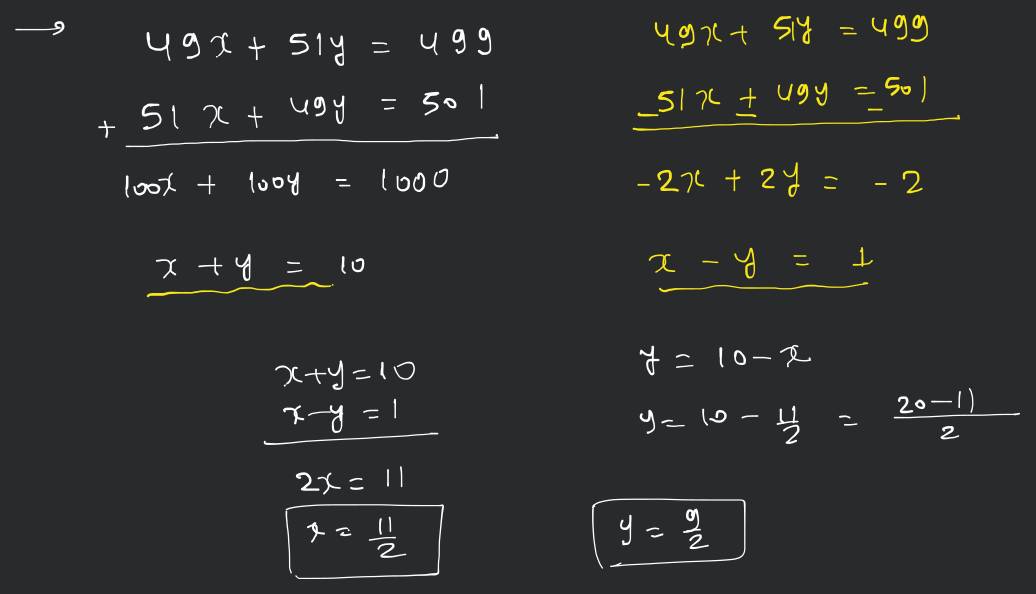 → 49x + 51y = 499
+ 51x + 49y = 501
100x + 100y = 1000
x + y = 10
49x + 51y = 499
_51x ± 49y = 501
-2x + 2y = -2
x - y = 1
x+y=10
x-y=1
2x = 11
x = 11/2
y = 10-x
y = 10 - 11/2 = 20-11/2
y = 9/2